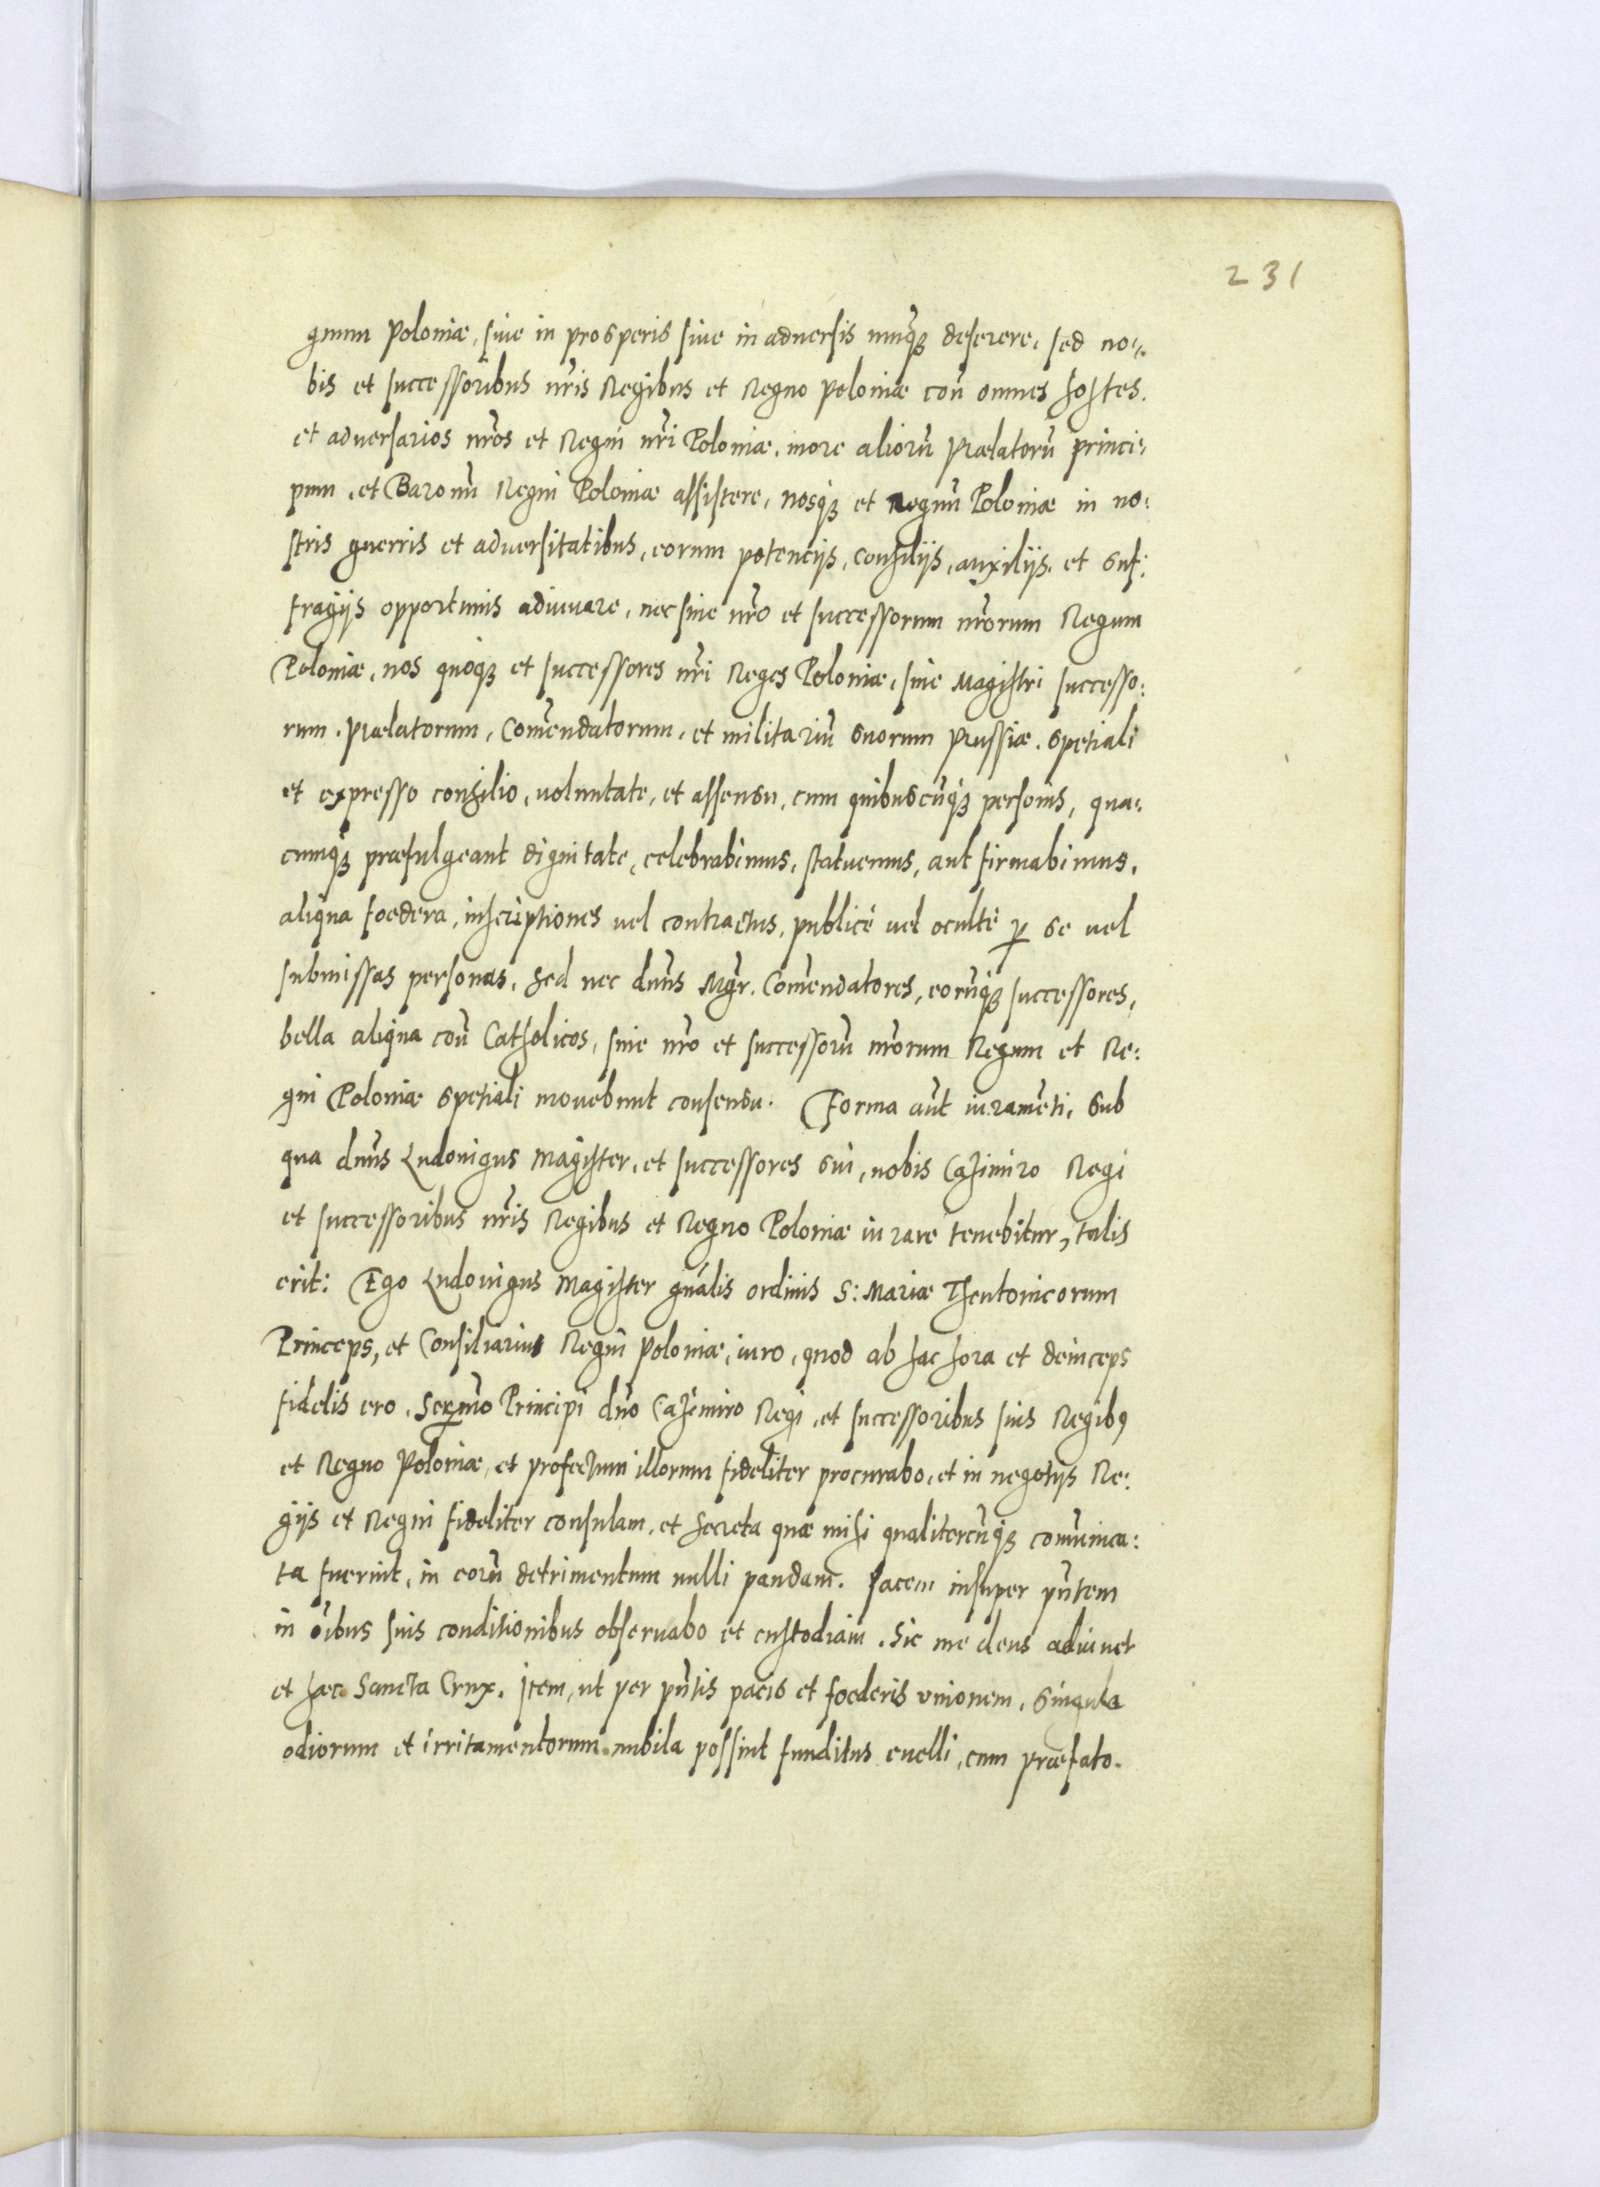 231
gnum Poloniæ, sive in prosperis sive in adversis nunq̃ꝫ deserere, sed no⸗
bis et successoribus nr̃is Regibus et Regno Poloniæ con̄ omnes hostes.
et adversarios nr̃os et Regni nr̃i Poloniæ, more aliorū Prælatorū princi⸗
pum, et Baronū Regni Poloniæ assistere, nosq̃ꝫ et Regnū Poloniæ in no⸗
stris guerris et adversitatibus, eorum potencijs, consilijs, auxilijs, et suf⸗
fragijs opportunis adiuvare, nec sine nr̃o et successorum nr̃orum Regum
Poloniæ, nos quoq̃ꝫ et successores nr̃i Reges Poloniæ, sine Magistri successo⸗
rum, Prælatorum, Com̄endatorum, et militariū suorum Prussiæ, spetiali
et expresso consilio, voluntate, et assensu, cum quibuscūq̃ꝫ personis, qua⸗
cumq̃ꝫ præfulgeant dignitate, celebrabimus, statuemus, aut firmabimus,
aliqua foedera, inscriptiones vel contractus, publicè vel ocultè ꝑ se vel
submissas personas, sed nec dn̄us Mgr̃. Com̄endatores, eorūq̃ꝫ successores,
bella aliqua con̄ Catholicos, sine nr̃o et successorū nr̃orum Regum et Re⸗
gni Poloniæ spetiali movebunt consensu. Forma aut̄ iuramēti, sub
qua dn̄us Ludovigus Magister, et successores sui, nobis Cazimiro Regi
et successoribus nr̃is Regibus et Regno Poloniæ iurare tenebitur, talis
erit: Ego Ludovigus Magister gn̄alis ordinis S: Mariæ Theutonicorum
Princeps, et Consiliarius Regni Poloniæ, iuro, quod ab hac hora et deinceps
fidelis ero, Serm̄o Principi dn̄o Cazimiro Regi, et successoribus suis Regibꝰ
et Regno Poloniæ, et profectum illorum fideliter procurabo, et in negotijs Re⸗
gijs et Regni fideliter consulam, et secreta quæ mihi qualitercūq̃ꝫ com̄unica⸗
ta fuerint, in eorū detrimentum nulli pandam. Pacem insuper pn̄tem
in oībus suis conditionibus observabo et custodiam. Sic me deus adiuvet
et hæc Sancta Crux. Item, ut per pn̄tis pacis et foederis unionem, singula
odiorum et irritamentorum nubila possint funditus evelli, cum præfato.